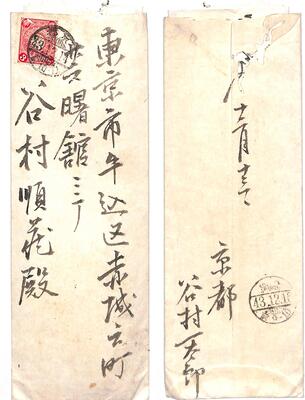 東京市牛込区赤城元町
廿六曙館ニテ
谷村順蔵殿
十二月十三日
京都
谷村一太郎
43.12.1